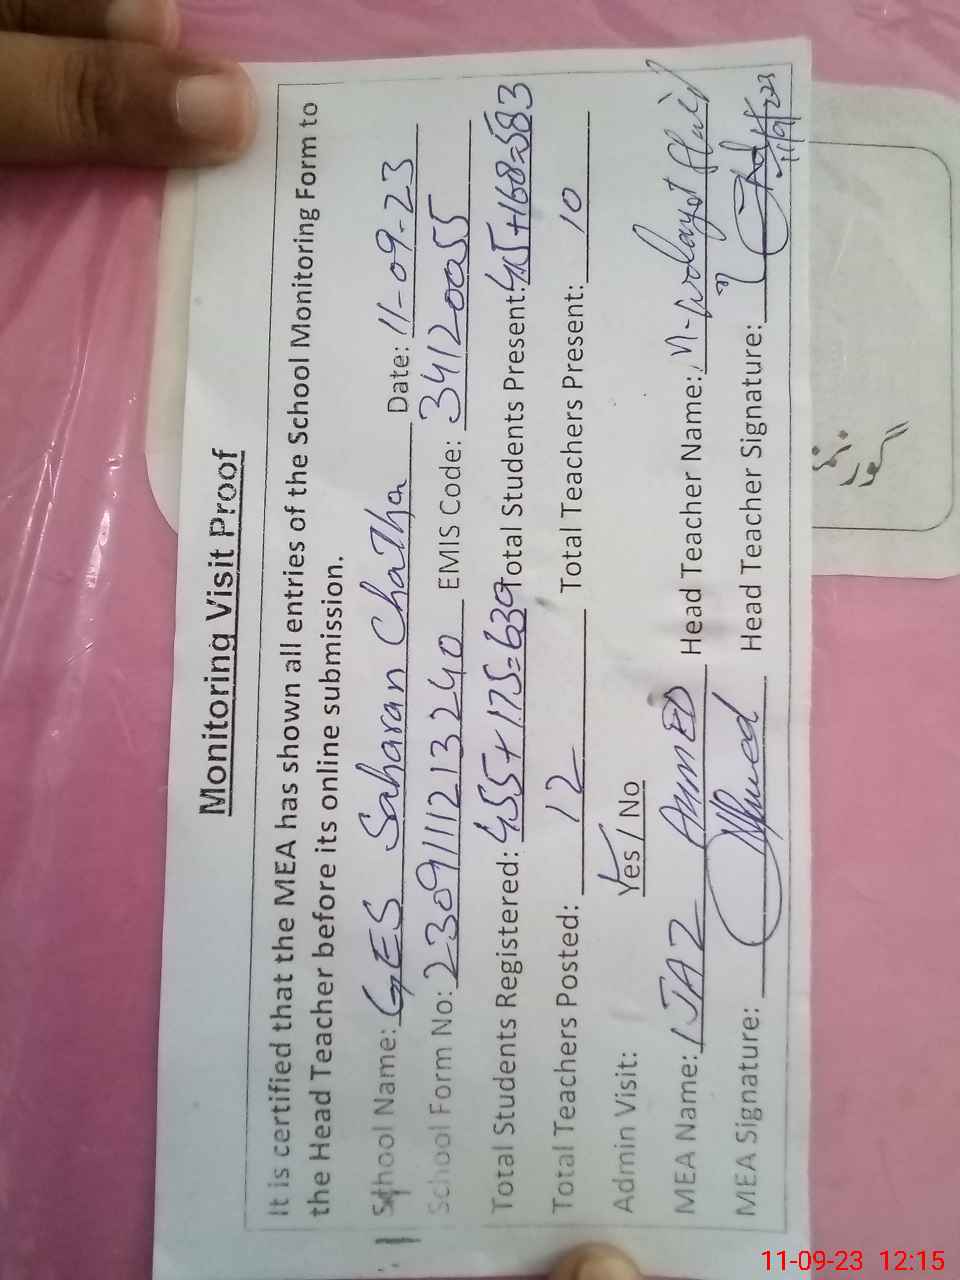 Monitoring Visit Proof
It is certified that the MEA has shown all entries of the School Monitoring Form to
the Head Teacher before its online submission.
School Name: GES Saharan Chatha Date: 11-09-23
School Form No: 2309111213240 EMIS Code: 34120055
Total Students Registered: 455+175=630 Total Students Present: 415+168=583
Total Teachers Posted: 12 Total Teachers Present: 10
Admin Visit: Yes / No
MEA Name: IJAZ AHMED Head Teacher Name: M-
MEA Signature: Ahmed Head Teacher Signature:
11-09-23 12:15